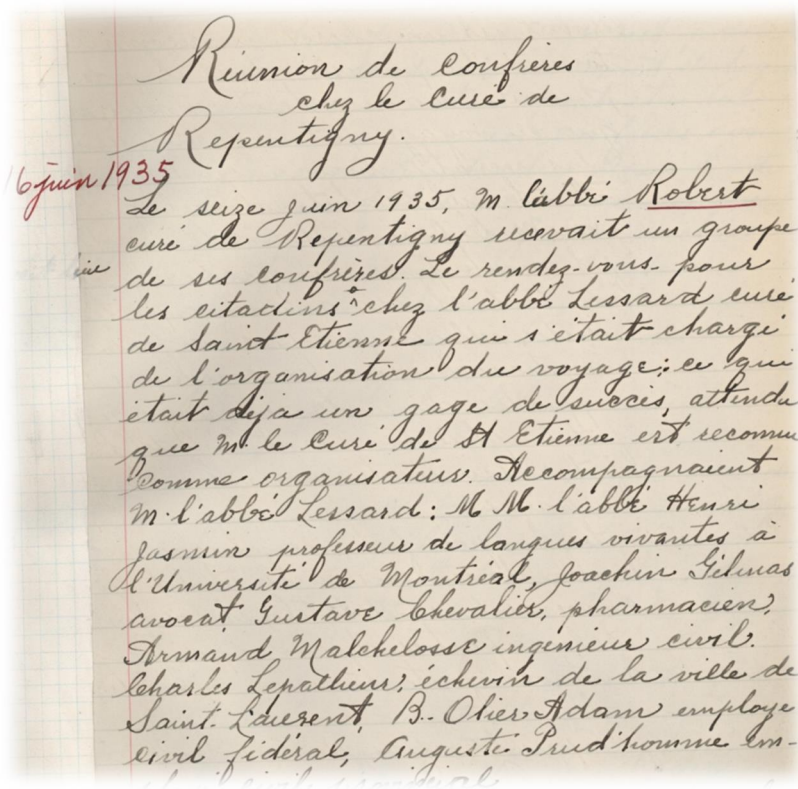 Réunion de confrères
chez le Curé de
Repentigny.
16 juin 1935
Le seize juin 1935, M. l'abbé Robert
curé de Repentigny recevait un groupe
de ses confrères. Le rendez-vous pour
les citadins chez l'abbé Lessard curé
de Saint Etienne qui s'était chargé
de l'organisation du voyage: ce qui
était déja un gage de succès, attendu
que M. le Curé de St Etienne est reconnu
comme organisateur. Accompagnaient
M. l'abbé Lessard: M M. l'abbé Henri
Jasmin professeur de langues vivantes à
l'Université de Montréal, Joachin Gélinas
avocat, Gustave Chevalier, pharmacien,
Armand Malchelosse ingénieur civil.
Charles Lepailleur, échevin de la ville de
Saint-Laurent, B.-Olier Adam employé
civil fédéral, Auguste Prud'homme em-